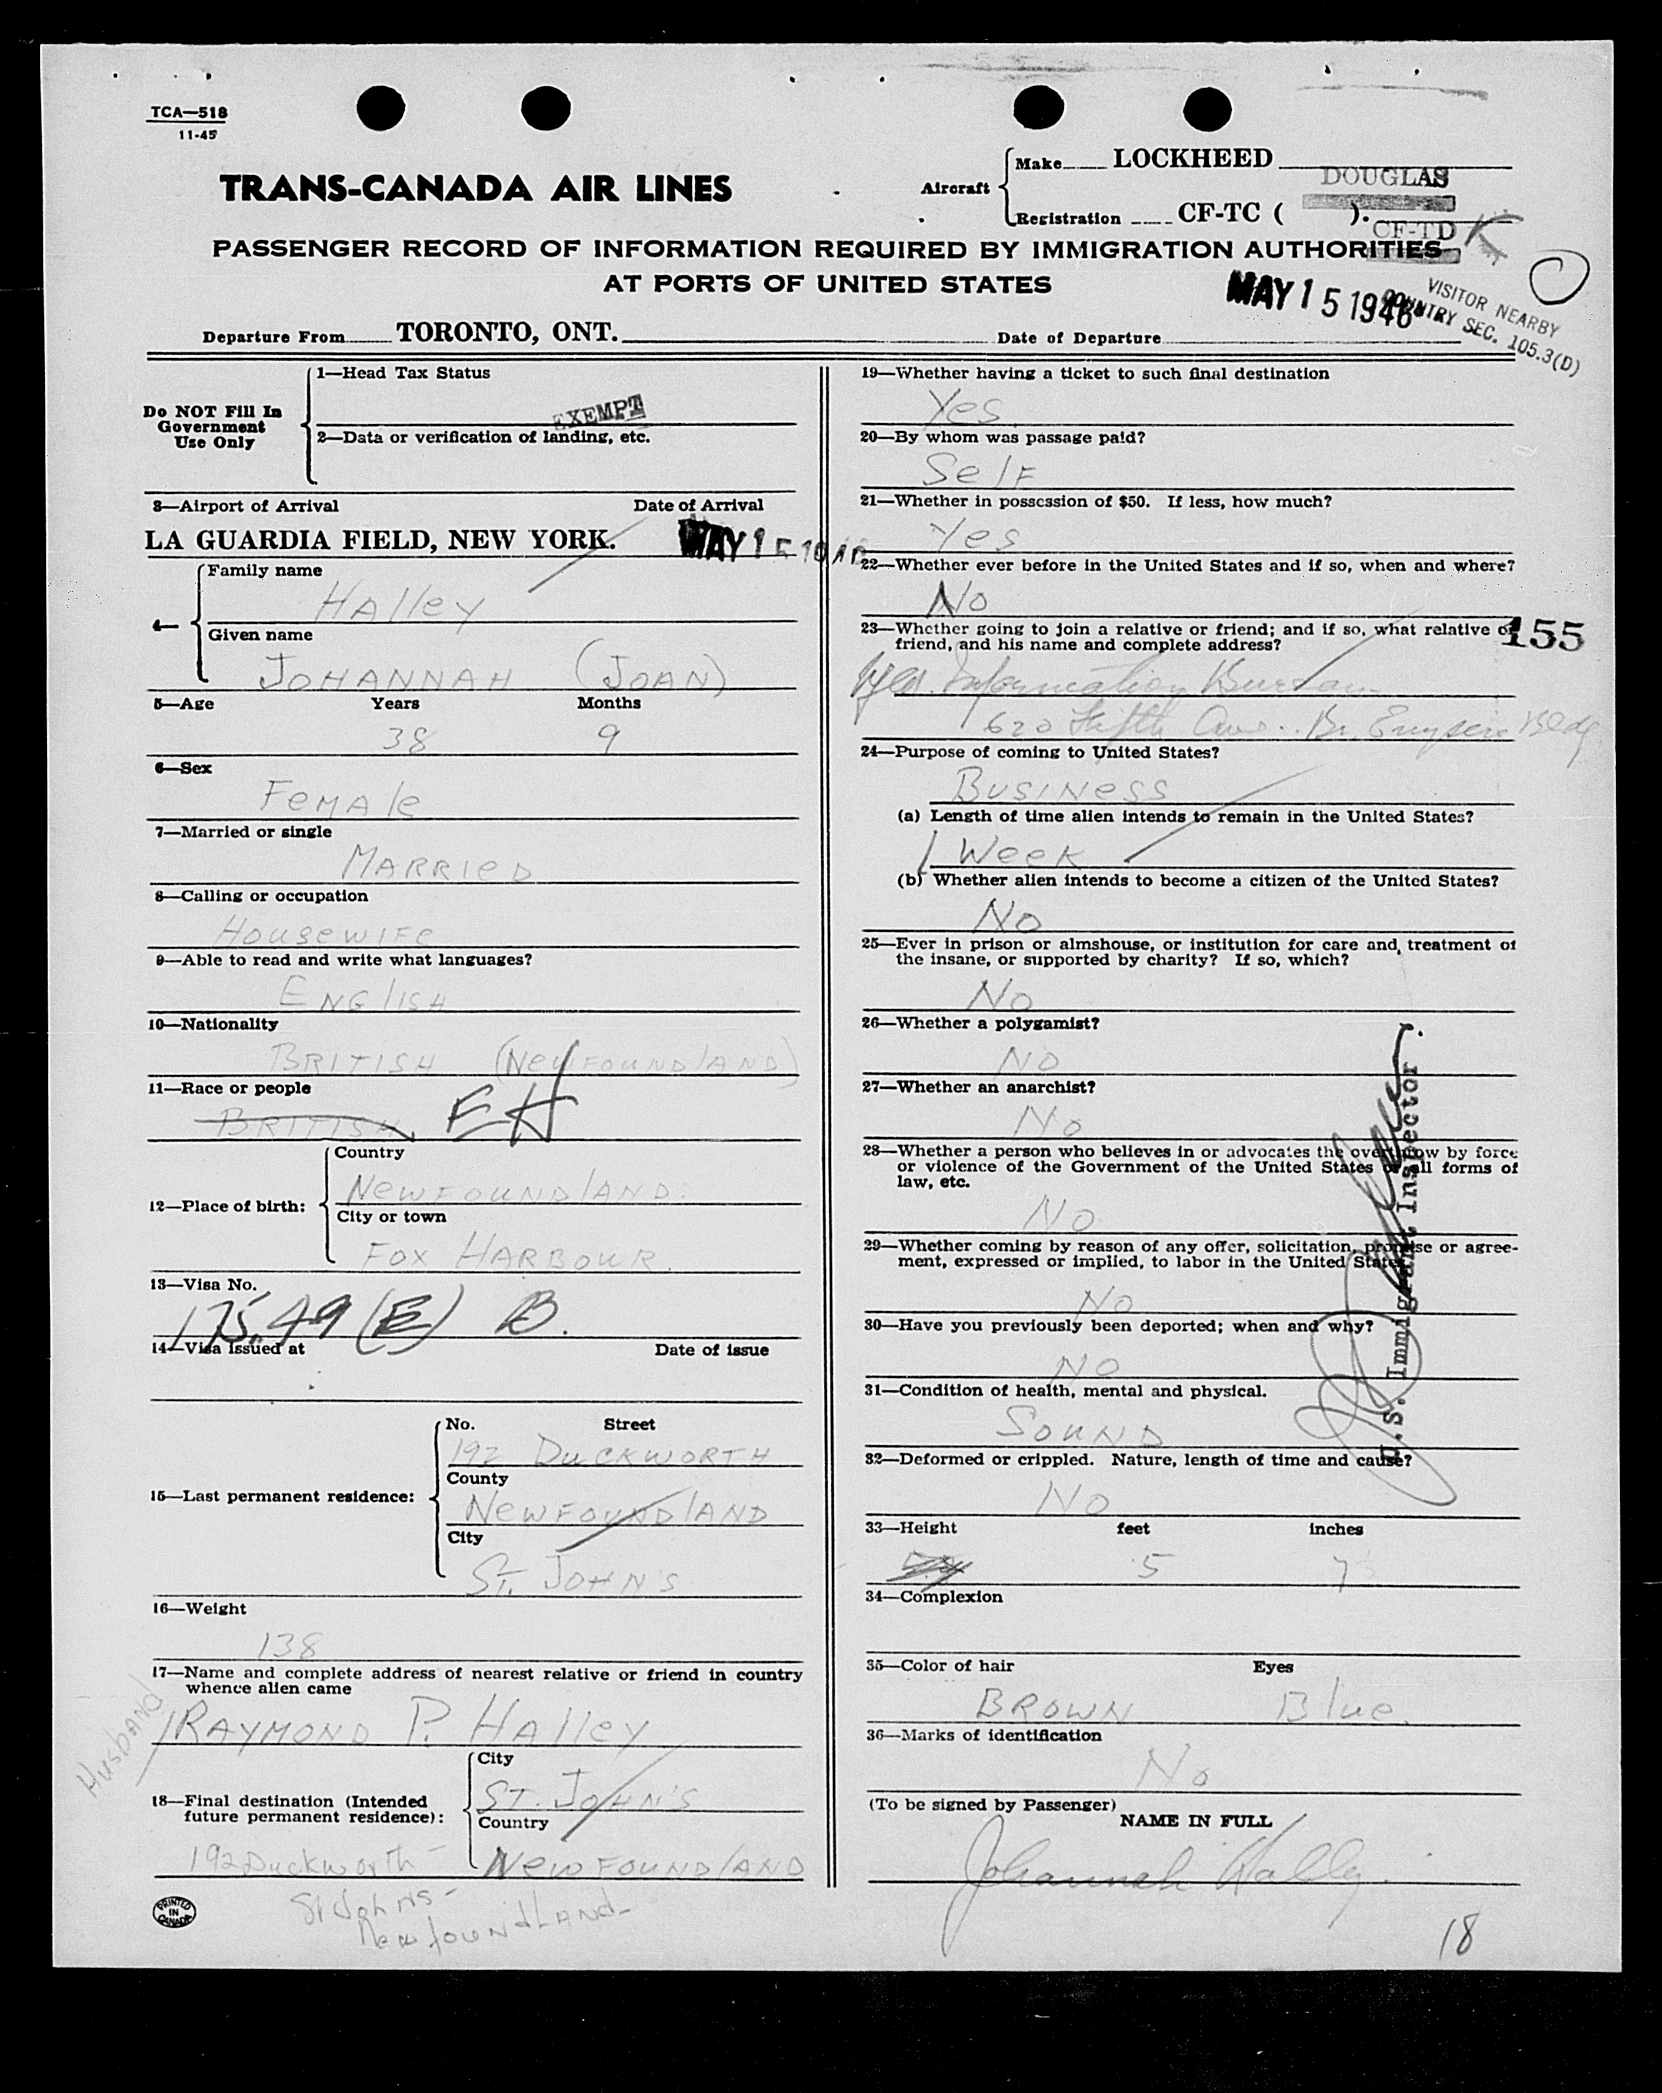 TCA—518
11-45
TRANS-CANADA AIR LINES
Aircraft
Make LOCKHEED
DOUGLAS
Registration CF-TC ( ).
CF-TD K
PASSENGER RECORD OF INFORMATION REQUIRED BY IMMIGRATION AUTHORITIES
AT PORTS OF UNITED STATES
MAY 15 1946
VISITOR NEARBY
COUNTRY SEC. 105.3(D)
Departure From TORONTO, ONT.
Date of Departure
Do NOT Fill In
Government
Use Only
1—Head Tax Status
EXEMPT
2—Data or verification of landing, etc.
3—Airport of Arrival Date of Arrival
LA GUARDIA FIELD, NEW YORK. MAY 15 1946
4—
Family name
HAlley
Given name
JOHANNAH (JOAN)
5—Age Years Months
38 9
6—Sex
FeMAle
7—Married or single
MARRIeD
8—Calling or occupation
HouseWIFe
9—Able to read and write what languages?
ENGlISH
10—Nationality
BRITISH (NewFOUNDlAND)
11—Race or people
BRITISH EH
12—Place of birth:
Country
NewFOUNDlAND.
City or town
FOX HARBOUR.
13—Visa No.
175.49 (E) B.
14—Visa issued at Date of issue
15—Last permanent residence:
No. Street
192 DuCKWORTH
County
NewFOUNDlAND
City
ST. JOHN'S
16—Weight
138
17—Name and complete address of nearest relative or friend in country
whence alien came
Husband
RAYMOND P. HAlley
18—Final destination (Intended
future permanent residence):
City
ST. JOHN'S
Country
192 Duckworth - NewFOUNDlAND
St Johns -
NewfoundLANd-
PRINTED
IN
CANADA
19—Whether having a ticket to such final destination
Yes
20—By whom was passage paid?
SelF
21—Whether in possession of $50. If less, how much?
Yes
22—Whether ever before in the United States and if so, when and where?
No
23—Whether going to join a relative or friend; and if so, what relative or
friend, and his name and complete address?
155
Information Bureau
620 Fifth Ave.. Br. Empire Bldg
24—Purpose of coming to United States?
BUSINeSS
(a) Length of time alien intends to remain in the United States?
1 Week
(b) Whether alien intends to become a citizen of the United States?
No
25—Ever in prison or almshouse, or institution for care and treatment of
the insane, or supported by charity? If so, which?
No
26—Whether a polygamist?
NO
27—Whether an anarchist?
No
28—Whether a person who believes in or advocates the overthrow by force
or violence of the Government of the United States or all forms of
law, etc.
No
29—Whether coming by reason of any offer, solicitation, promise or agree-
ment, expressed or implied, to labor in the United States?
No
30—Have you previously been deported; when and why?
NO
31—Condition of health, mental and physical.
SOUND
32—Deformed or crippled. Nature, length of time and cause?
NO
U.S. Immigrant Inspector.
33—Height feet inches
5 7
34—Complexion
35—Color of hair Eyes
BROWN Blue.
36—Marks of identification
No
(To be signed by Passenger)
NAME IN FULL
Johannah Halley.
18